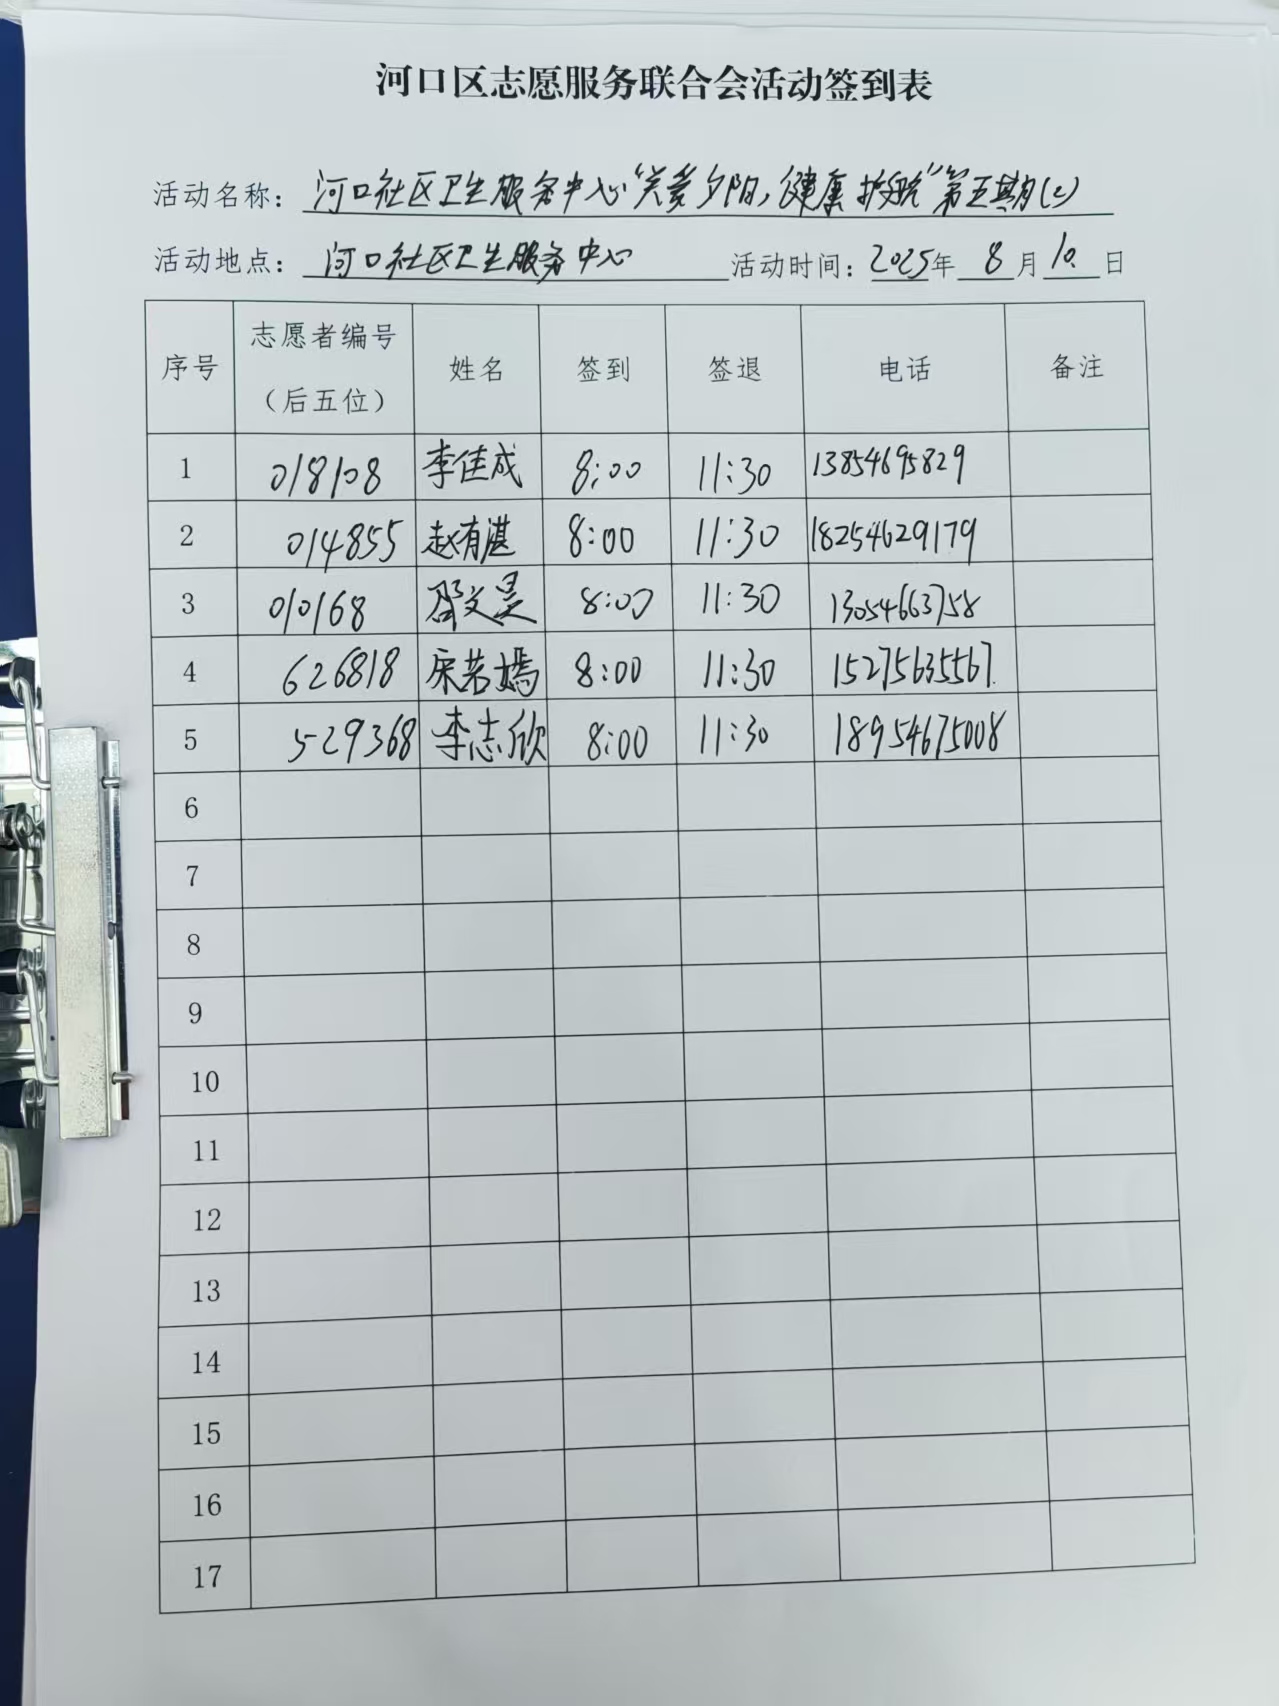 河口区志愿服务联合会活动签到表
活动名称：河口社区卫生服务中心“关爱夕阳，健康护航”第五期(2)
活动地点：河口社区卫生服务中心 活动时间：2025年 8月10日
序号 志愿者编号（后五位） 姓名 签到 签退 电话 备注
1 018108 李佳成 8:00 11:30 13854695829
2 014855 赵有湛 8:00 11:30 18254629179
3 010168 邵文昊 8:00 11:30 13054663758
4 626818 宋若嫣 8:00 11:30 15275635567
5 529368 李志欣 8:00 11:30 18954675008
6
7
8
9
10
11
12
13
14
15
16
17